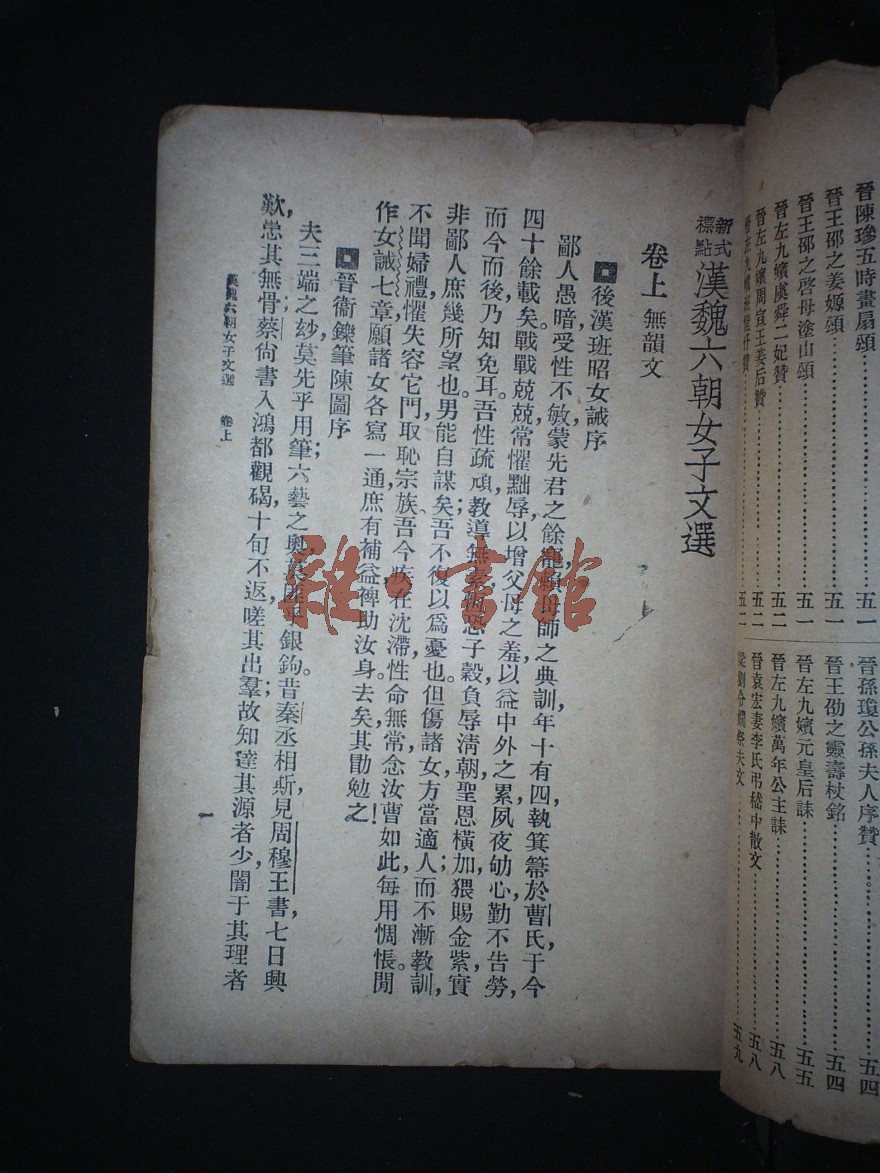 晉陳璆五時畫扇頌……五一
晉王邵之姜嫄頌……五一
晉王邵之啓母塗山頌……五一
晉左九嬪虞舜二妃贊……五二
晉左九嬪周宣王姜后贊……五二
晉左九嬪班婕妤贊……五二
晉孫瓊公孫夫人序贊……五四
晉王劭之靈壽杖銘……五四
晉左九嬪元皇后誄……五五
晉左九嬪萬年公主誄……五八
晉袁宏妻李氏弔嵇中散文……五八
梁劉令嫺祭夫文……五九
新式標點漢魏六朝女子文選
卷上 無韻文
後漢班昭女誡序
鄙人愚暗,受性不敏,蒙先君之餘寵,賴母師之典訓,年十有四,執箕箒於曹氏,于今
四十餘載矣。戰戰兢兢,常懼黜辱,以增父母之羞,以益中外之累,夙夜劬心,勤不告勞,
而今而後,乃知免耳。吾性疏頑,教導無素,恆恐子穀負辱清朝;聖恩橫加,猥賜金紫,實
非鄙人庶幾所望也。男能自謀矣,吾不復以爲憂也。但傷諸女方當適人,而不漸教訓,
不聞婦禮,懼失容它門,取恥宗族。吾今疾在沈滯,性命無常,念汝曹如此,每用惆悵。閒
作女誡七章,願諸女各寫一通,庶有補益,裨助汝身。去矣,其勖勉之!
晉衞鑠筆陳圖序
夫三端之玅,莫先乎用筆;六藝之奧,莫匪乎銀鉤。昔秦丞相斯見周穆王書,七日興
歎,患其無骨;蔡尙書入鴻都觀碣,十旬不返,嗟其出羣;故知達其源者少,闇于其理者
漢魏六朝女子文選 卷上
一
雜·書館